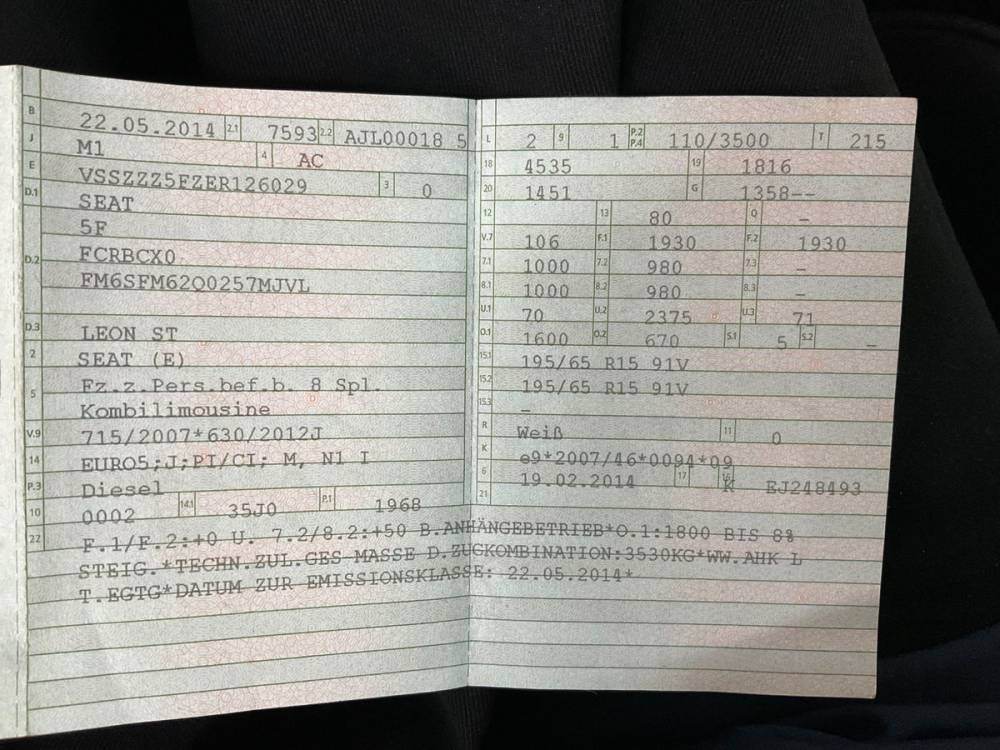 B 22.05.2014 2.1 7593 2.2 AJL00018 5
J M1 4 AC
E VSSZZZ5FZER126029 3 0
D.1 SEAT
5F
D.2 FCRBCX0
FM6SFM62Q0257MJVL
D.3 LEON ST
2 SEAT (E)
5 Fz.z.Pers.bef.b. 8 Spl.
Kombilimousine
V.9 715/2007*630/2012J
14 EURO5;J;PI/CI; M, N1 I
P.3 Diesel
10 0002 14.1 35J0 P.1 1968
L 2 9 1 P.2 P.4 110/3500 T 215
18 4535 19 1816
20 1451 G 1358--
12 13 80 Q -
V.7 106 F.1 1930 F.2 1930
7.1 1000 7.2 980 7.3 -
8.1 1000 8.2 980 8.3 -
U.1 70 U.2 2375 U.3 71
O.1 1600 O.2 670 S.1 5 S.2 -
15.1 195/65 R15 91V
15.2 195/65 R15 91V
15.3 -
R Weiß 11 0
K e9*2007/46*0094*09
6 19.02.2014 17 K 16 EJ248493
21
22 F.1/F.2:+0 U. 7.2/8.2:+50 B.ANHÄNGEBETRIEB*O.1:1800 BIS 8%
STEIG.*TECHN.ZUL.GES.MASSE D.ZUGKOMBINATION:3530KG*WW.AHK L
T.EGTG*DATUM ZUR EMISSIONSKLASSE: 22.05.2014*